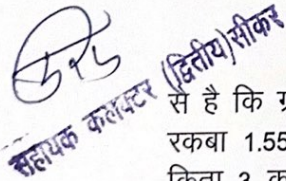 सहायक कलक्टर (द्वितीय) सीकर
से है कि
रकबा 1.55
किता 3